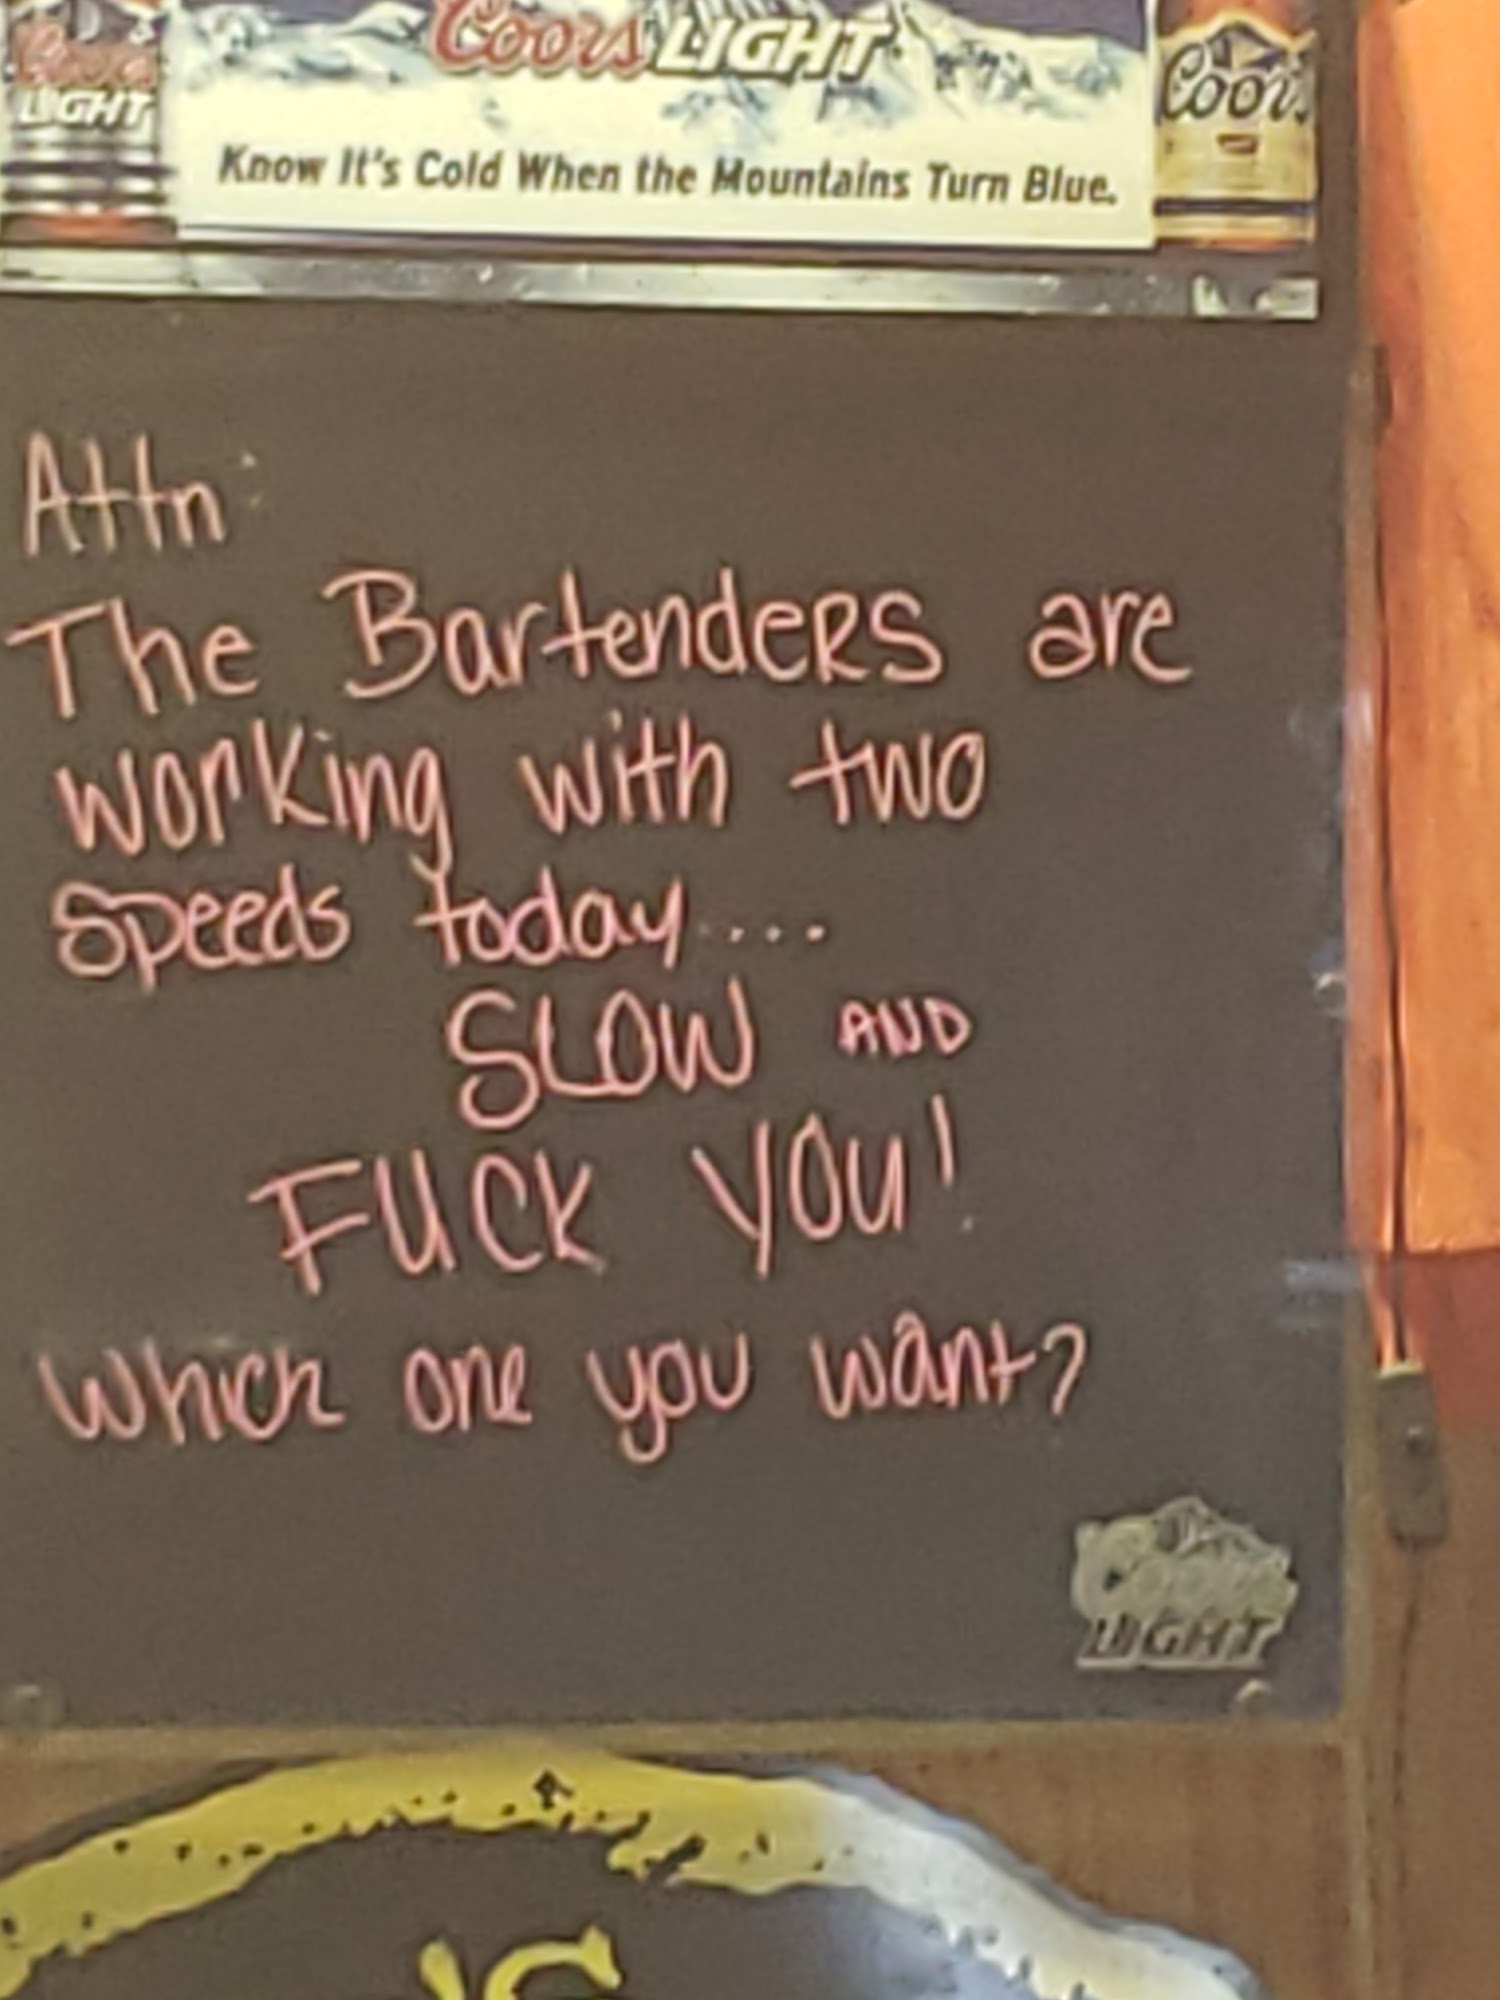 Coors LIGHT
Coors LIGHT
Coors
Know It's Cold When the Mountains Turn Blue.
Attn:
The BartendeRS are
working with two
speeds today....
SLOW AND
FUCK YOU!
Which one you want?
Coors
LIGHT
'S